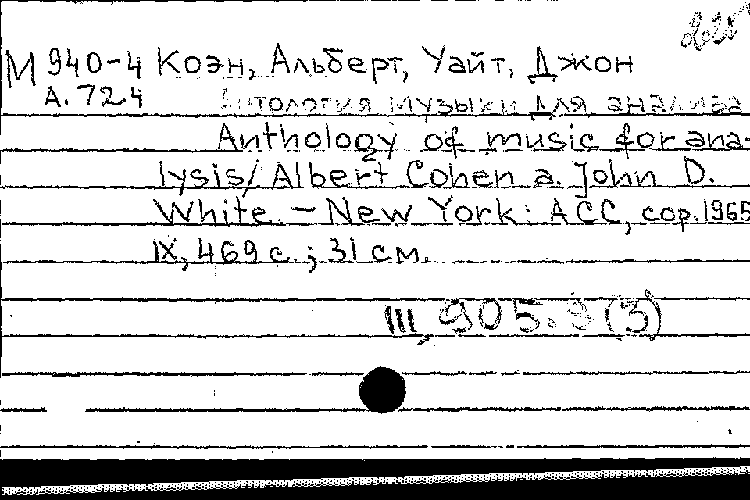 М 940-4 Коэн, Альберт, Уайт, Джон
А.724 Антология музыки для анализа
Anthology of music for ana-
lysis/ Albert Cohen a. John D.
White. – New York: ACC, cop.1965
IX, 469 с.; 31 см.
III, 905.9 (3)